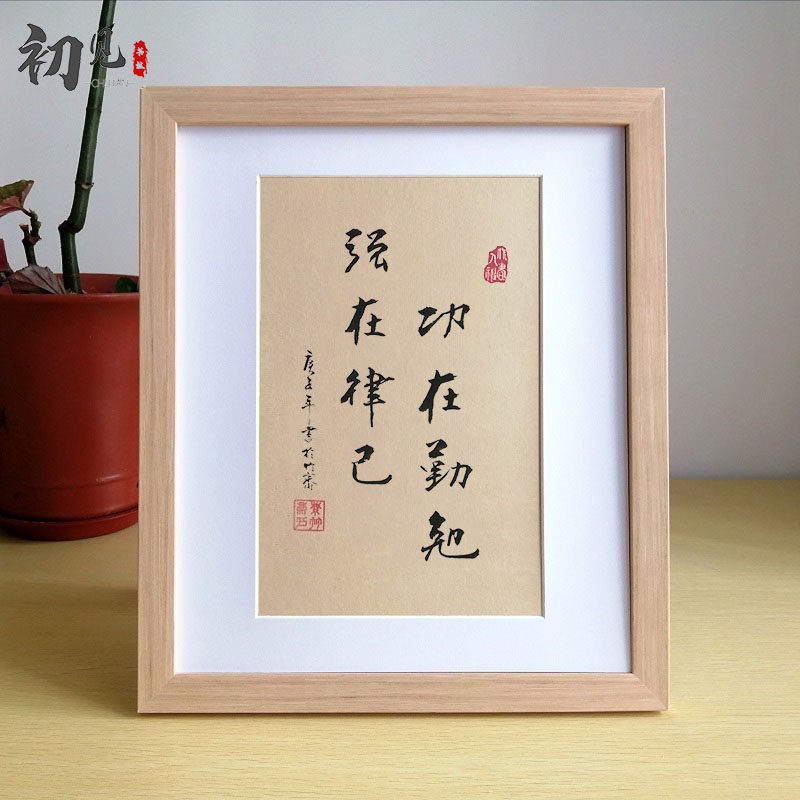 初见
功在勤勉
强在律己
庚子年书于竹斋